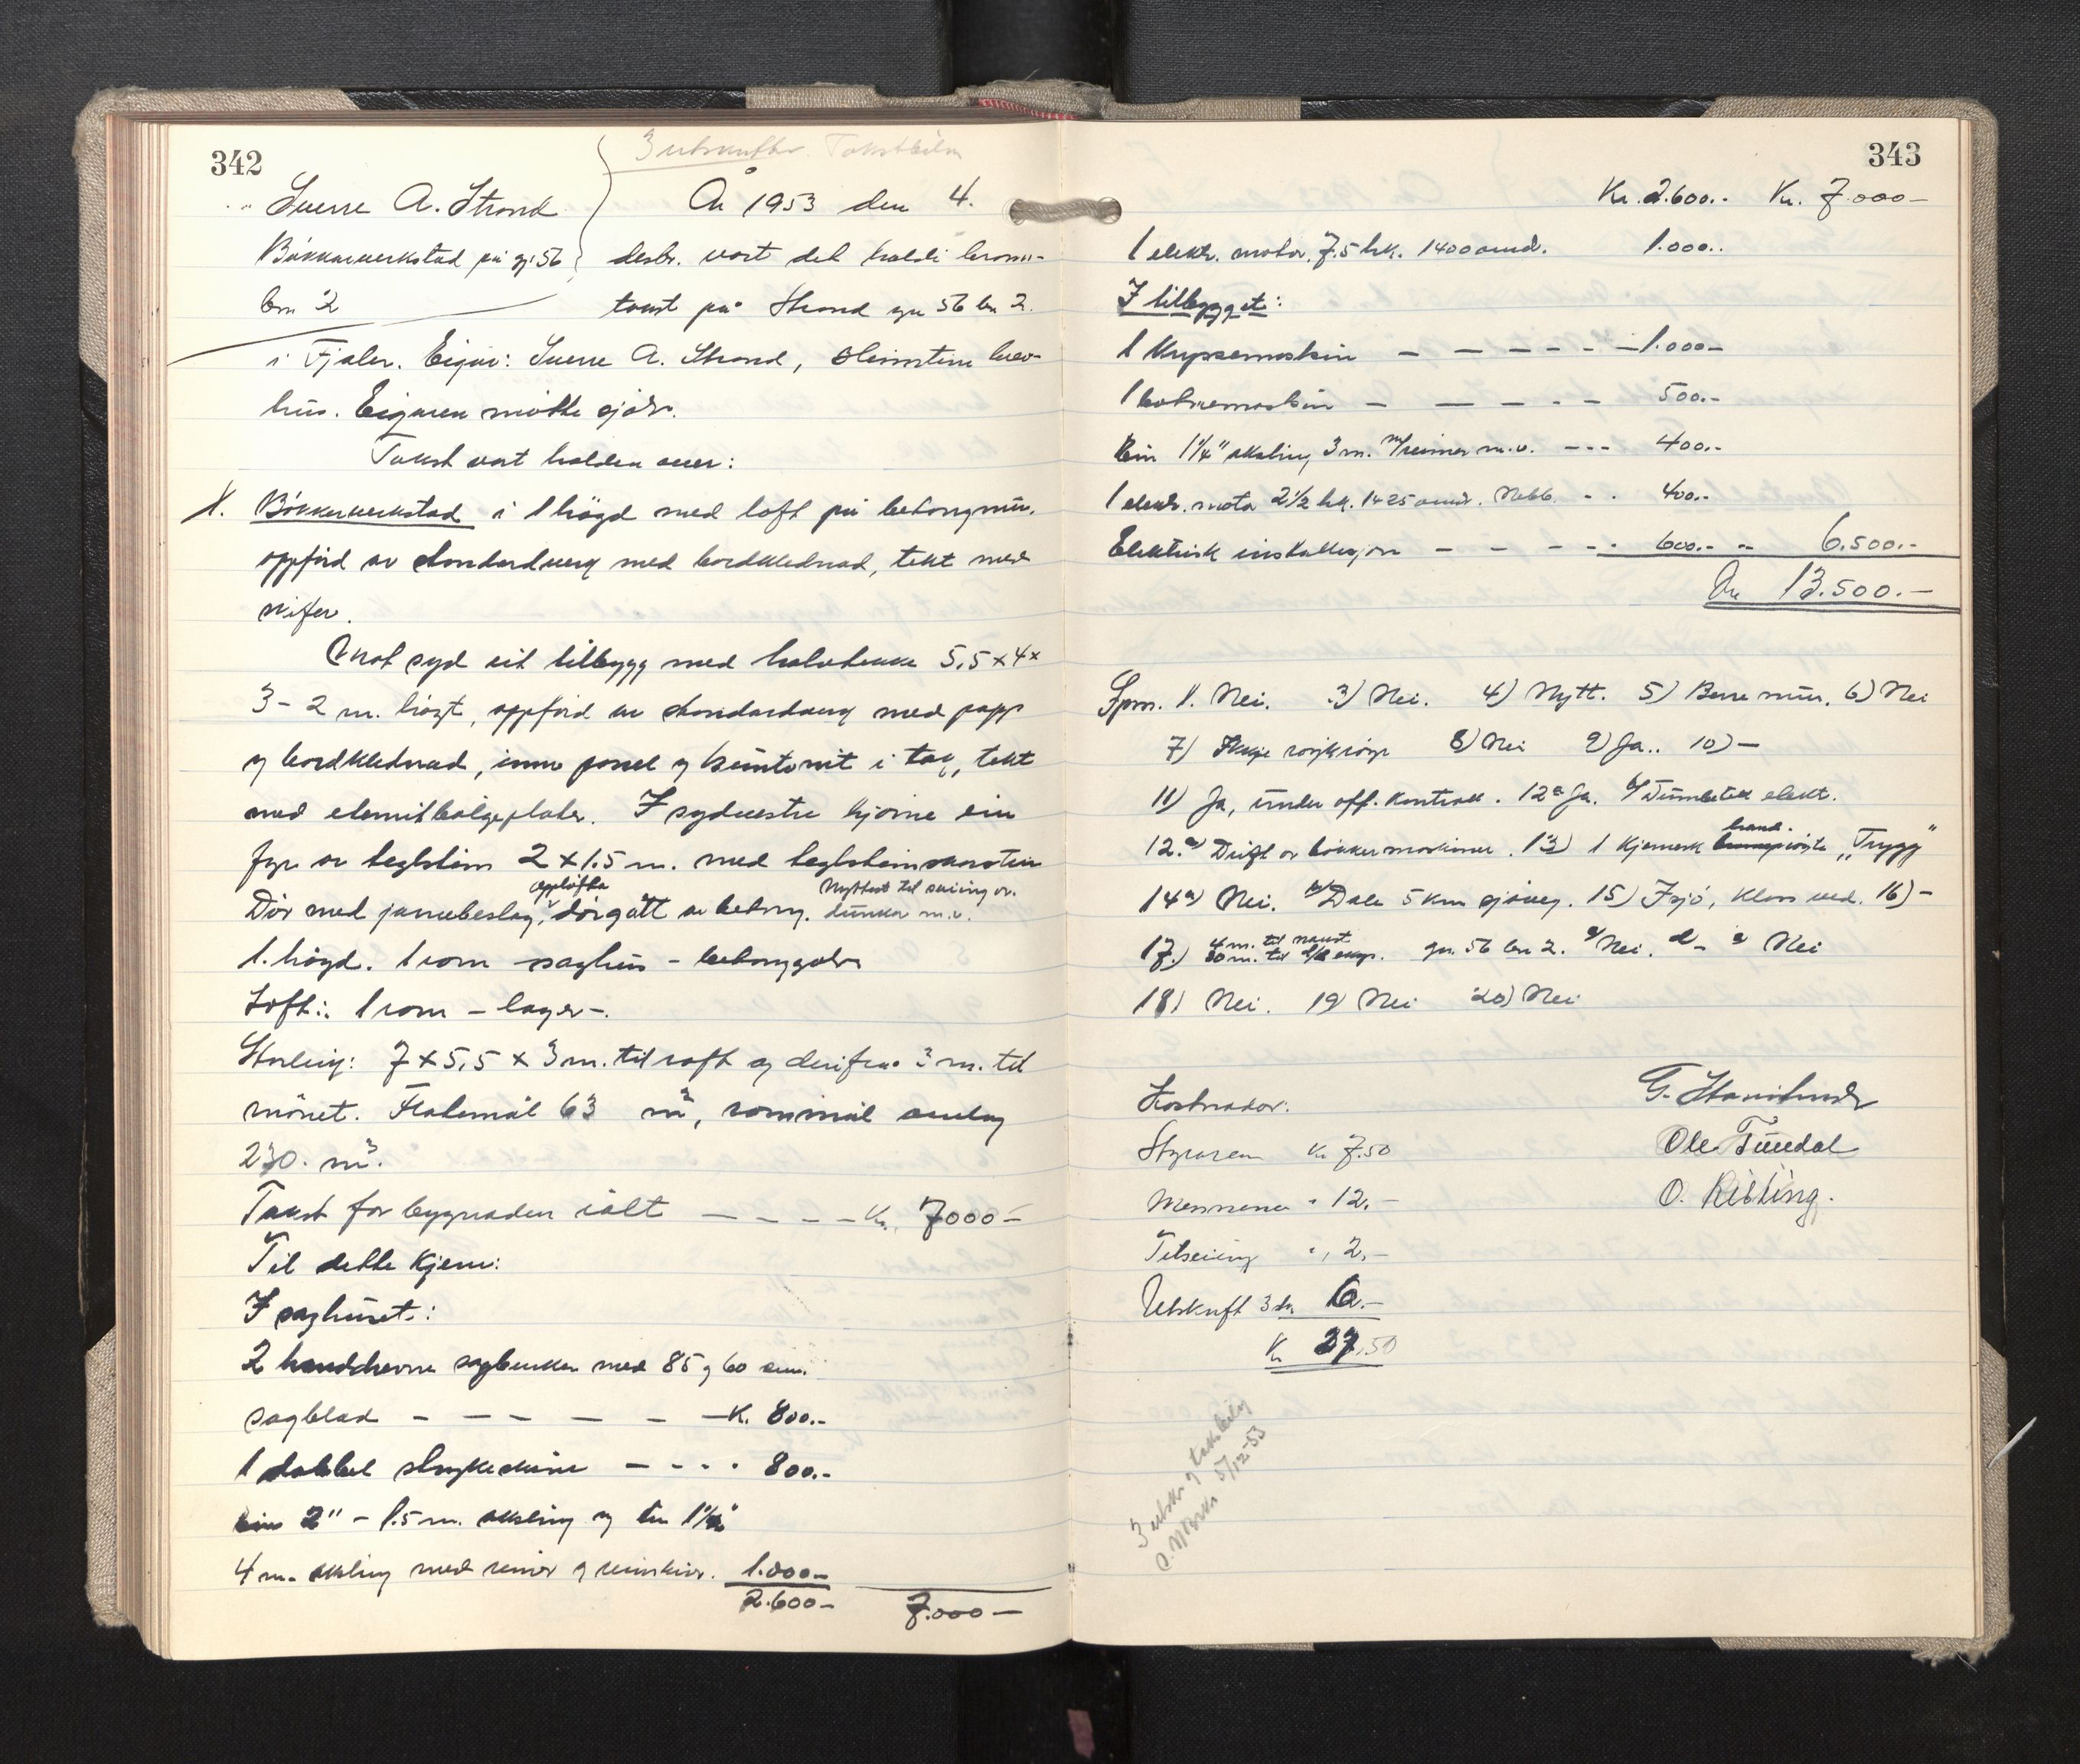 342
3 utskrifter. Takstbilag
Sverre A. Strand
Bökkarverkstad på g. 56
bn 2
År 1953 den 4.
desbr. vart det haldi brann-
takst på Strand gn 56 bn 2.
i Fjaler. Eigar: Sverre A. Strand, Steinstein brev-
hus. Eigaren møtte sjølv.
Takst vart halden over:
1. Bökkerverkstad i 1 högd med loft på betongmur,
oppförd av standardverg med bordklednad, tekt med
skifer.
Imot syd eit tilbygg med halvtekke 5,5 x 4 x
3-2 m. högt, oppförd av standardverg med papp
og bordklednad, inne panel og huntonit i tak, tekt
med eternitbølgeplater. I sydvestre hjörne ein
fyr av teglstein 2 x 1.5 m. med teglsteinskorstein
opplöfta Nyttast til
Dör med jarnbeslag, dörgått av betong. tunner m.v.
1. högd. 1 rom saghus - betonggolv
Loft: 1 rom - lager -.
Storleik: 7 x 5,5 x 3 m. til raft og derifrå 3 m. til
mönet. Flatemål 63 m², rommål omlag
230. m³.
Takst for bygnaden ialt - - - - Kr. 7000 -
Til dette kjem:
I saghuset:
2 handdrevne sagbenker med 85 og 60 cm.
sagblad - - - - - - K. 800.-
1 dobbel strykeskive - - - - 800.-
Ein 2" - 1.5 m. aksling og ein 1¼"
4 m. aksling med reimer og reimskiver. 1.000-
2.600- 7.000-
343
Kr. 2.600.- Kr. 7.000-
1 elektr. motor. 7.5 hk. 1400 omd. 1.000..
I tilbygget:
1 Krypsemaskin - - - - - - 1.000-
1 botnemaskin - - - - - 500.-
Ein 1¼" aksling 3 m. m/reimer m.v. - - - 400.-
1 elektr. motor 2½ hk. 1425 omdr. Nebb. - . 400.-
Elektrisk installasjon - - - - . 600.- " 6.500.-
Kr 13.500.-
Spm. 1. Nei. 3) Nei. 4) Nytt. 5) Berre mur. 6) Nei
7) Ikkje 8) Nei 9) Ja.. 10) -
11) Ja, under off. kontroll. 12a Ja. b/ elekt.
hand-
12.c) Drift av bökkermaskiner. 13) 1 Kjemisk "Trygg"
14a) Nei. b) Dale 5 km sjöveg. 15) I sjö, kloss ved. 16) -
4 m. til naust
17.) 30 m. til eksp. gn. 56 bn 2. c) Nei. d - e Nei
18) Nei. 19) Nei 20) Nei
Kostnader:
Styraren Kr 7.50
Mennene " 12.-
Tilseiing " 2.-
Utskrift 3 st. 6.-
Kr 27,50
Ole Tuedal
O. Risting.
3 utskr. og takstbilag
5/12-53